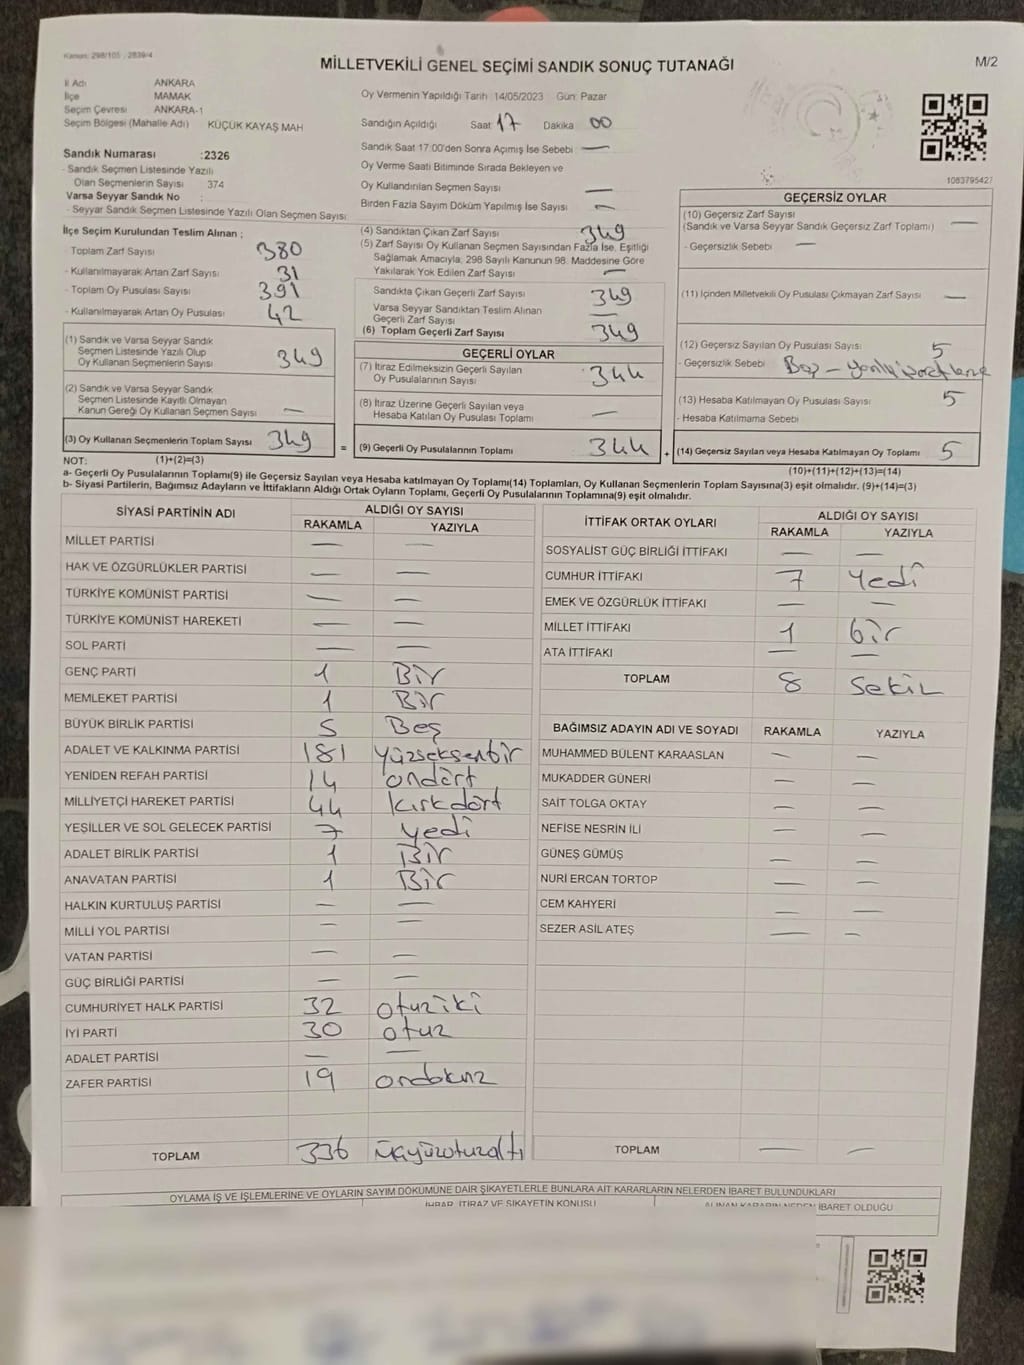 Kanun: 298/105 , 2839/4
MİLLETVEKİLİ GENEL SEÇİMİ SANDIK SONUÇ TUTANAĞI
M/2
İl Adı ANKARA
İlçe MAMAK
Seçim Çevresi ANKARA-1
Seçim Bölgesi (Mahalle Adı) KÜÇÜK KAYAŞ MAH
Sandık Numarası :2326
- Sandık Seçmen Listesinde Yazılı
Olan Seçmenlerin Sayısı 374
Varsa Seyyar Sandık No :
- Seyyar Sandık Seçmen Listesinde Yazılı Olan Seçmen Sayısı
İlçe Seçim Kurulundan Teslim Alınan ;
- Toplam Zarf Sayısı 380
- Kullanılmayarak Artan Zarf Sayısı 31
- Toplam Oy Pusulası Sayısı 391
- Kullanılmayarak Artan Oy Pusulası 42
(1) Sandık ve Varsa Seyyar Sandık
Seçmen Listesinde Yazılı Olup
Oy Kullanan Seçmenlerin Sayısı 349
(2) Sandık ve Varsa Seyyar Sandık
Seçmen Listesinde Kayıtlı Olmayan
Kanun Gereği Oy Kullanan Seçmen Sayısı —
(3) Oy Kullanan Seçmenlerin Toplam Sayısı 349 =
Oy Vermenin Yapıldığı Tarih 14/05/2023 Gün: Pazar
Sandığın Açıldığı Saat 17 Dakika 00
Sandık Saat 17:00'den Sonra Açılmış İse Sebebi —
Oy Verme Saati Bitiminde Sırada Bekleyen ve
Oy Kullandırılan Seçmen Sayısı —
Birden Fazla Sayım Döküm Yapılmış İse Sayısı —
(4) Sandıktan Çıkan Zarf Sayısı 349
(5) Zarf Sayısı Oy Kullanan Seçmen Sayısından Fazla İse, Eşitliği
Sağlamak Amacıyla, 298 Sayılı Kanunun 98. Maddesine Göre
Yakılarak Yok Edilen Zarf Sayısı —
Sandıkta Çıkan Geçerli Zarf Sayısı 349
Varsa Seyyar Sandıktan Teslim Alınan
Geçerli Zarf Sayısı —
(6) Toplam Geçerli Zarf Sayısı 349
GEÇERLİ OYLAR
(7) İtiraz Edilmeksizin Geçerli Sayılan
Oy Pusulalarının Sayısı 344
(8) İtiraz Üzerine Geçerli Sayılan veya
Hesaba Katılan Oy Pusulası Toplamı —
(9) Geçerli Oy Pusulalarının Toplamı 344 +
1083795427
GEÇERSİZ OYLAR
(10) Geçersiz Zarf Sayısı
(Sandık ve Varsa Seyyar Sandık Geçersiz Zarf Toplamı) —
- Geçersizlik Sebebi —
(11) İçinden Milletvekili Oy Pusulası Çıkmayan Zarf Sayısı —
(12) Geçersiz Sayılan Oy Pusulası Sayısı 5
- Geçersizlik Sebebi Boş —
(13) Hesaba Katılmayan Oy Pusulası Sayısı 5
- Hesaba Katılmama Sebebi
(14) Geçersiz Sayılan veya Hesaba Katılmayan Oy Toplamı 5
NOT: (1)+(2)=(3) (10)+(11)+(12)+(13)=(14)
a- Geçerli Oy Pusulalarının Toplamı(9) ile Geçersiz Sayılan veya Hesaba katılmayan Oy Toplamı(14) Toplamları, Oy Kullanan Seçmenlerin Toplam Sayısına(3) eşit olmalıdır. (9)+(14)=(3)
b- Siyasi Partilerin, Bağımsız Adayların ve İttifakların Aldığı Ortak Oyların Toplamı, Geçerli Oy Pusulalarının Toplamına(9) eşit olmalıdır.
SİYASİ PARTİNİN ADI ALDIĞI OY SAYISI
RAKAMLA YAZIYLA
MİLLET PARTİSİ — —
HAK VE ÖZGÜRLÜKLER PARTİSİ — —
TÜRKİYE KOMÜNİST PARTİSİ — —
TÜRKİYE KOMÜNİST HAREKETİ — —
SOL PARTİ — —
GENÇ PARTİ 1 Bir
MEMLEKET PARTİSİ 1 Bir
BÜYÜK BİRLİK PARTİSİ 5 Beş
ADALET VE KALKINMA PARTİSİ 181 yüzseksenbir
YENİDEN REFAH PARTİSİ 14 ondört
MİLLİYETÇİ HAREKET PARTİSİ 44 kırkdört
YEŞİLLER VE SOL GELECEK PARTİSİ 7 yedi
ADALET BİRLİK PARTİSİ 1 Bir
ANAVATAN PARTİSİ 1 Bir
HALKIN KURTULUŞ PARTİSİ — —
MİLLİ YOL PARTİSİ — —
VATAN PARTİSİ — —
GÜÇ BİRLİĞİ PARTİSİ — —
CUMHURİYET HALK PARTİSİ 32 otuziki
İYİ PARTİ 30 otuz
ADALET PARTİSİ — —
ZAFER PARTİSİ 19 ondokuz
TOPLAM 336 üçyüzotuzaltı
İTTİFAK ORTAK OYLARI ALDIĞI OY SAYISI
RAKAMLA YAZIYLA
SOSYALİST GÜÇ BİRLİĞİ İTTİFAKI — —
CUMHUR İTTİFAKI 7 Yedi
EMEK VE ÖZGÜRLÜK İTTİFAKI — —
MİLLET İTTİFAKI 1 bir
ATA İTTİFAKI — —
TOPLAM 8 Sekiz
BAĞIMSIZ ADAYIN ADI VE SOYADI RAKAMLA YAZIYLA
MUHAMMED BÜLENT KARAASLAN — —
MUKADDER GÜNERİ — —
SAİT TOLGA OKTAY — —
NEFİSE NESRİN İLİ — —
GÜNEŞ GÜMÜŞ — —
NURİ ERCAN TORTOP — —
CEM KAHYERİ — —
SEZER ASİL ATEŞ — —
TOPLAM — —
OYLAMA İŞ VE İŞLEMLERİNE VE OYLARIN SAYIM DÖKÜMÜNE DAİR ŞİKAYETLERLE BUNLARA AİT KARARLARIN NELERDEN İBARET BULUNDUKLARI
İHBAR, İTİRAZ VE ŞİKAYETİN KONUSU ALINAN KARARIN NEDEN İBARET OLDUĞU